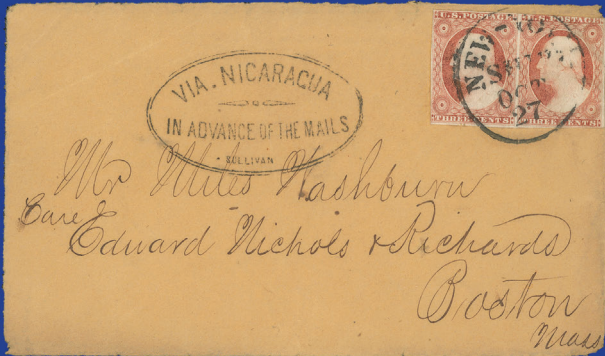 U.S. POSTAGE U.S. POSTAGE
THREE CENTS THREE CENTS
NEW
OCT
27
VIA. NICARAGUA
IN ADVANCE OF THE MAILS
SULLIVAN
Mr Miles Washburn
Care
Edward Nichols & Richards
Boston
Mass